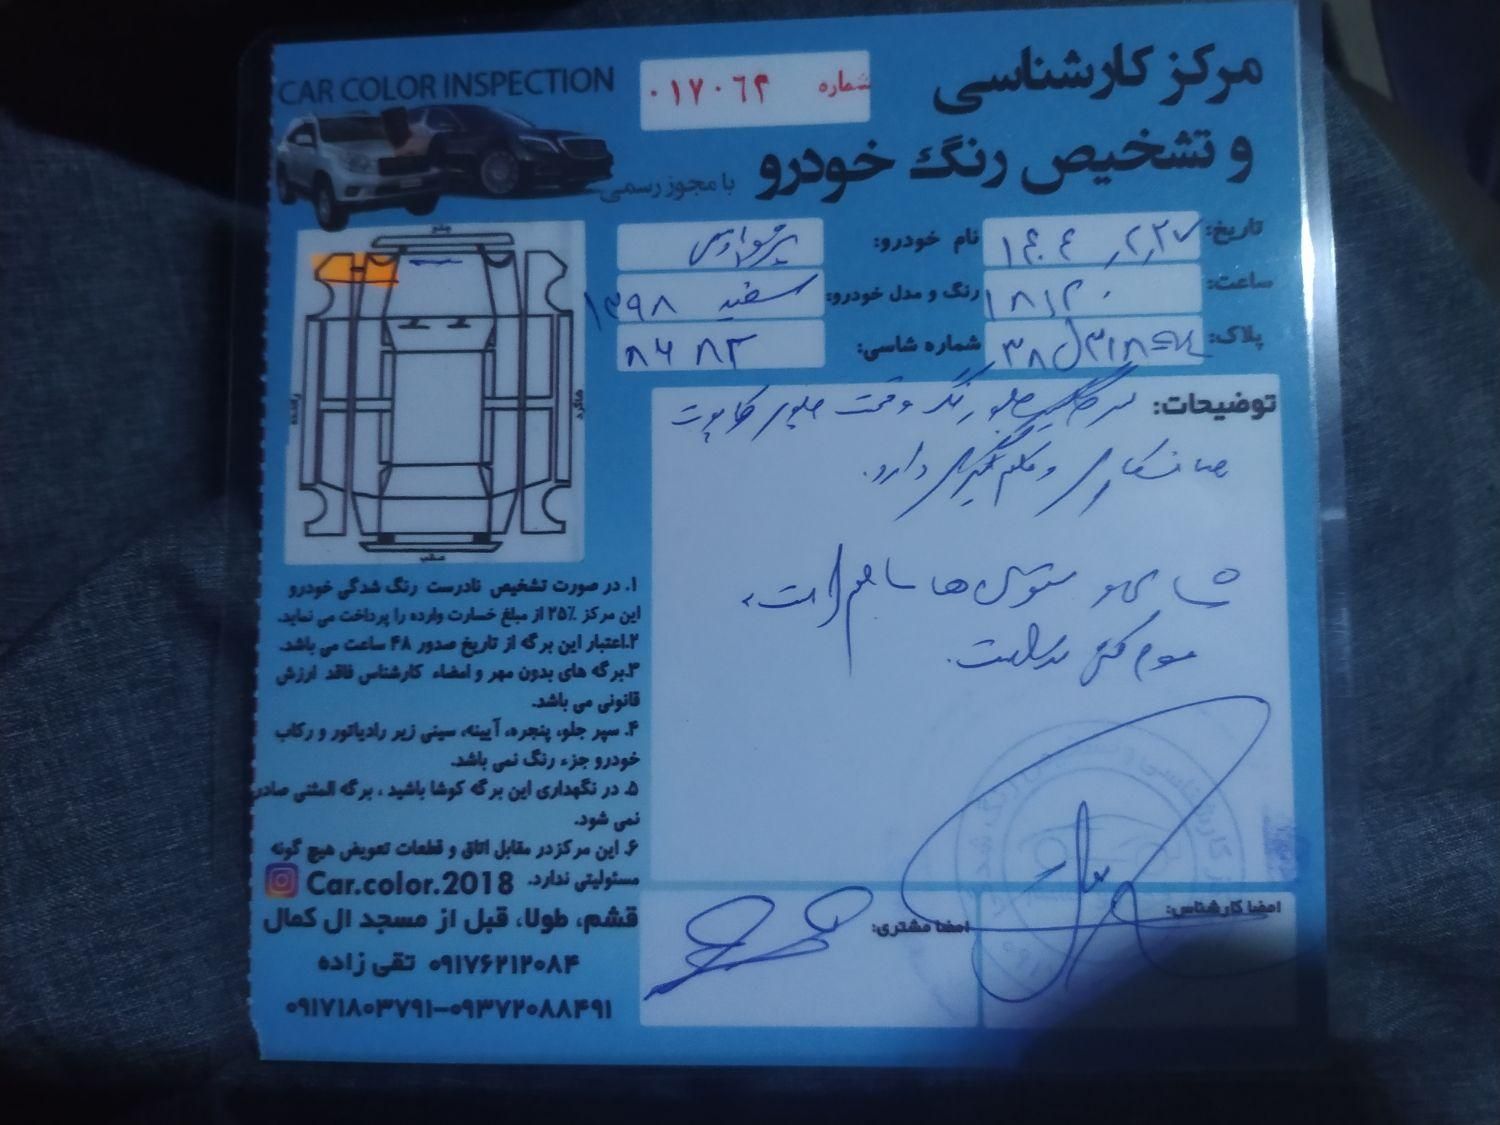 CAR COLOR INSPECTION
شماره ۰۱۷۰۶۳
مرکز کارشناسی
و تشخیص رنگ خودرو
با مجوز رسمی
تاریخ: ۱۴۰۴٫۲٫۲۷
نام خودرو:
ساعت: ۱۸٫۳۰
رنگ و مدل خودرو: سفید ۱۳۹۸
پلاک: ۳۸ل۳۱۸
شماره شاسی: ۸۶۸۳
توضیحات: رنگ و قسمت جلوی کاپوت
صافکاری و دارد.
شاسی و ستون ها سالم است.
جلو
راننده
شاگرد
عقب
۱. در صورت تشخیص نادرست رنگ شدگی خودرو
این مرکز ۲۵٪ از مبلغ خسارت وارده را پرداخت می نماید.
۲.اعتبار این برگه از تاریخ صدور ۴۸ ساعت می باشد.
۳.برگه های بدون مهر و امضاء کارشناس فاقد ارزش
قانونی می باشد.
۴. سپر جلو، پنجره، آیینه، سینی زیر رادیاتور و رکاب
خودرو جزء رنگ نمی باشد.
۵. در نگهداری این برگه کوشا باشید ، برگه المثنی صادر
نمی شود.
۶. این مرکزدر مقابل اتاق و قطعات تعویض هیچ گونه
مسئولیتی ندارد.
Car.color.2018
قشم، طولا، قبل از مسجد ال کمال
۰۹۱۷۶۲۱۲۰۸۴ تقی زاده
۰۹۱۷۱۸۰۳۷۹۱-۰۹۳۷۲۰۸۸۴۹۱
امضا مشتری:
امضا کارشناس: